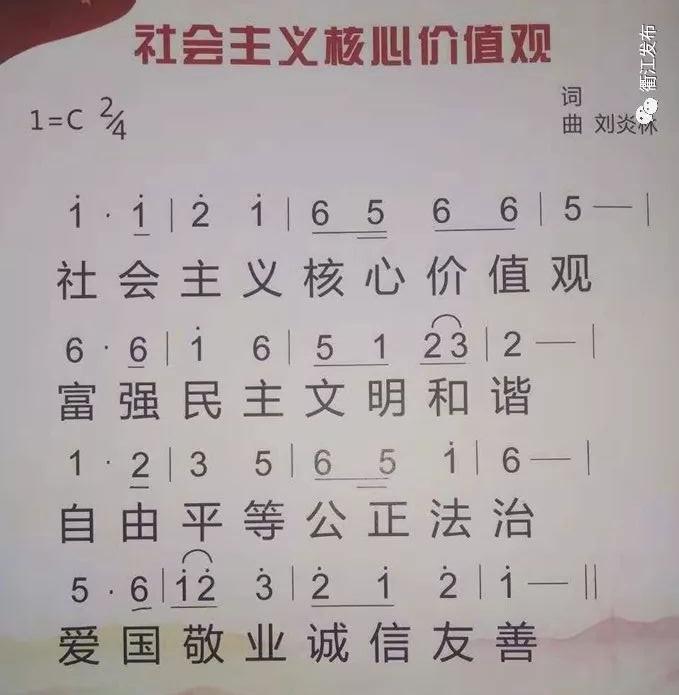 社会主义核心价值观
衢江发布
词
1=C 2/4
曲 刘炎林
1̇ · 1̇ | 2̇ 1̇ | 6 5 6 6 | 5 — |
社会主义核心价值观
6 · 6 | 1̇ 6 | 5 1 23 | 2 — |
富强民主文明和谐
1 · 2 | 3 5 | 6 5 1̇ | 6 — |
自由平等公正法治
5 · 6 | 1̇2̇ 3̇ | 2̇ 1̇ 2̇ | 1̇ — ‖
爱国敬业诚信友善